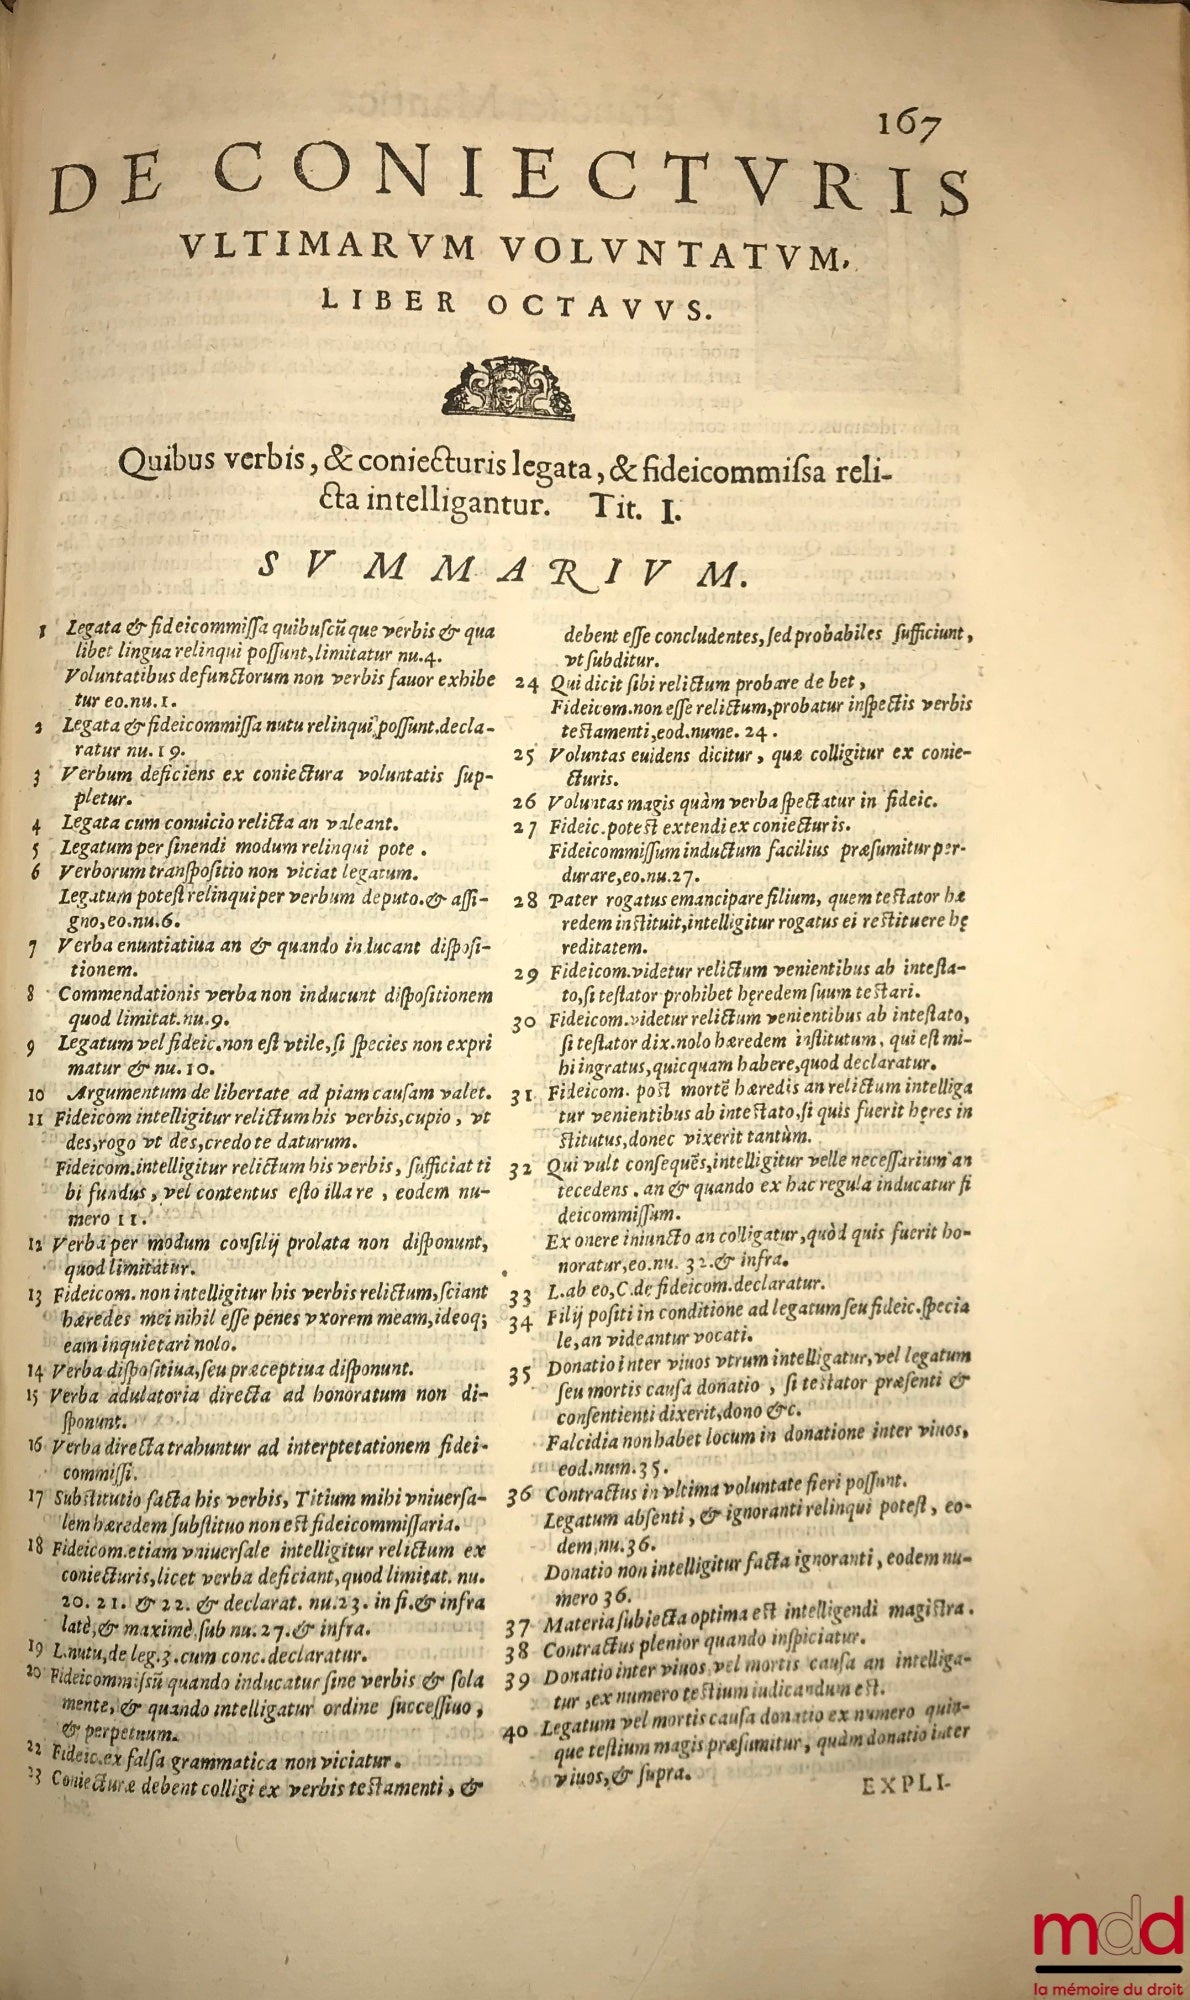 167
DE CONIECTVRIS
VLTIMARVM VOLVNTATVM.
LIBER OCTAVVS.
Quibus verbis, & coniecturis legata, & fideicommiſsa reli-
cta intelligantur. Tit. I.
SVMMARIVM.
1 Legata & fideicommiſſa quibuſcũque verbis & qua
libet lingua relinqui poſſunt, limitatur nu.4.
Voluntatibus defunctorum non verbis fauor exhibe
tur eo.nu.1.
2 Legata & fideicommiſſa nutu relinqui poſſunt.decla-
ratur nu.19.
3 Verbum deficiens ex coniectura voluntatis ſup-
pletur.
4 Legata cum conuicio relicta an valeant.
5 Legatum per ſinendi modum relinqui pote .
6 Verborum tranſpoſitio non viciat legatum.
Legatum poteſt relinqui per verbum deputo.& aſſi-
gno, eo.nu.6.
7 Verba enuntiatiua an & quando inducant diſpoſi-
tionem.
8 Commendationis verba non inducunt diſpoſitionem
quod limitat.nu.9.
9 Legatum vel fideic.non eſt vtile, ſi ſpecies non expri
matur & nu.10.
10 Argumentum de libertate ad piam cauſam valet.
11 Fideicom intelligitur relictum his verbis, cupio, vt
des, rogo vt des, credo te daturum.
Fideicom.intelligitur relictum his verbis, ſufficiat ti
bi fundus, vel contentus eſto illa re, eodem nu-
mero 11.
12 Verba per modum conſilij prolata non diſponunt,
quod limitatur.
13 Fideicom. non intelligitur his verbis relictum, ſciant
hæredes mei nihil eſſe penes vxorem meam, ideoq;
eam inquietari nolo.
14 Verba diſpoſitiua, ſeu præceptiua diſponunt.
15 Verba adulatoria directa ad honoratum non di-
ſponunt.
16 Verba directa trahuntur ad interptetationem fidei-
commiſſi.
17 Subſtitutio facta his verbis, Titium mihi vniuerſa-
lem hæredem ſubſtituo non eſt fideicommiſſaria.
18 Fideicom.etiam vniuerſale intelligitur relictum ex
coniecturis, licet verba deficiant, quod limitat. nu.
20. 21. & 22. & declarat. nu.23. in fi.& infra
latè, & maximè ſub nu.27.& infra.
19 L.nutu, de leg.3.cum conc.declaratur.
20 Fideicommiſsũ quando inducatur ſine verbis & ſola
mente, & quando intelligatur ordine ſucceſſiuo,
& perpetuum.
22 Fideic.ex falſa grammatica non viciatur.
23 Coniecturæ debent colligi ex verbis teſtamenti, &
debent eſſe concludentes, ſed probabiles ſufficiunt,
vt ſubditur.
24 Qui dicit ſibi relictum probare de bet,
Fideicom.non eſſe relictum, probatur inſpectis verbis
teſtamenti, eod.nume. 24.
25 Voluntas euidens dicitur, quæ colligitur ex conie-
cturis.
26 Voluntas magis quàm verba ſpectatur in fideic.
27 Fideic.poteſt extendi ex coniecturis.
Fideicommiſſum inductum facilius præſumitur per-
durare, eo.nu.27.
28 Pater rogatus emancipare filium, quem teſtator hæ
redem inſtituit, intelligitur rogatus ei reſtituere hę
reditatem.
29 Fideicom.videtur relictum venientibus ab inteſta-
to, ſi teſtator prohibet hęredem ſuum teſtari.
30 Fideicom.videtur relictum venientibus ab inteſtato,
ſi teſtator dix.nolo hæredem inſtitutum, qui eſt mi-
hi ingratus, quicquam habere, quod declaratur.
31 Fideicom. poſt mortẽ hæredis an relictum intelliga
tur venientibus ab inteſtato, ſi quis fuerit hęres in
ſtitutus, donec vixerit tantùm.
32 Qui vult conſequẽs, intelligitur velle neceſſarium an
tecedens. an & quando ex hac regula inducatur fi
deicommiſſum.
Ex onere iniuncto an colligatur, quòd quis fuerit ho-
noratur, eo.nu. 32.& infra.
33 L.ab eo, C.de fideicom.declaratur.
34 Filij poſiti in conditione ad legatum ſeu fideic.ſpecia
le, an videantur vocati.
35 Donatio inter viuos vtrum intelligatur, vel legatum
ſeu mortis cauſa donatio, ſi teſtator præſenti &
conſentienti dixerit, dono &c.
Falcidia non habet locum in donatione inter viuos,
eod.num.35.
36 Contractus in vltima voluntate fieri poſſunt.
Legatum abſenti, & ignoranti relinqui poteſt, eo-
dem, nu.36.
Donatio non intelligitur facta ignoranti, eodem nu-
mero 36.
37 Materia ſubiecta optima eſt intelligendi magiſtra.
38 Contractus plenior quando inſpiciatur.
39 Donatio inter viuos vel mortis cauſa an intelliga-
tur, ex numero teſtium iudicandum eſt.
40 Legatum vel mortis cauſa donatio ex numero quin-
que teſtium magis præſumitur, quàm donatio inter
viuos, & ſupra.
EXPLI-
mdd
la mémoire du droit